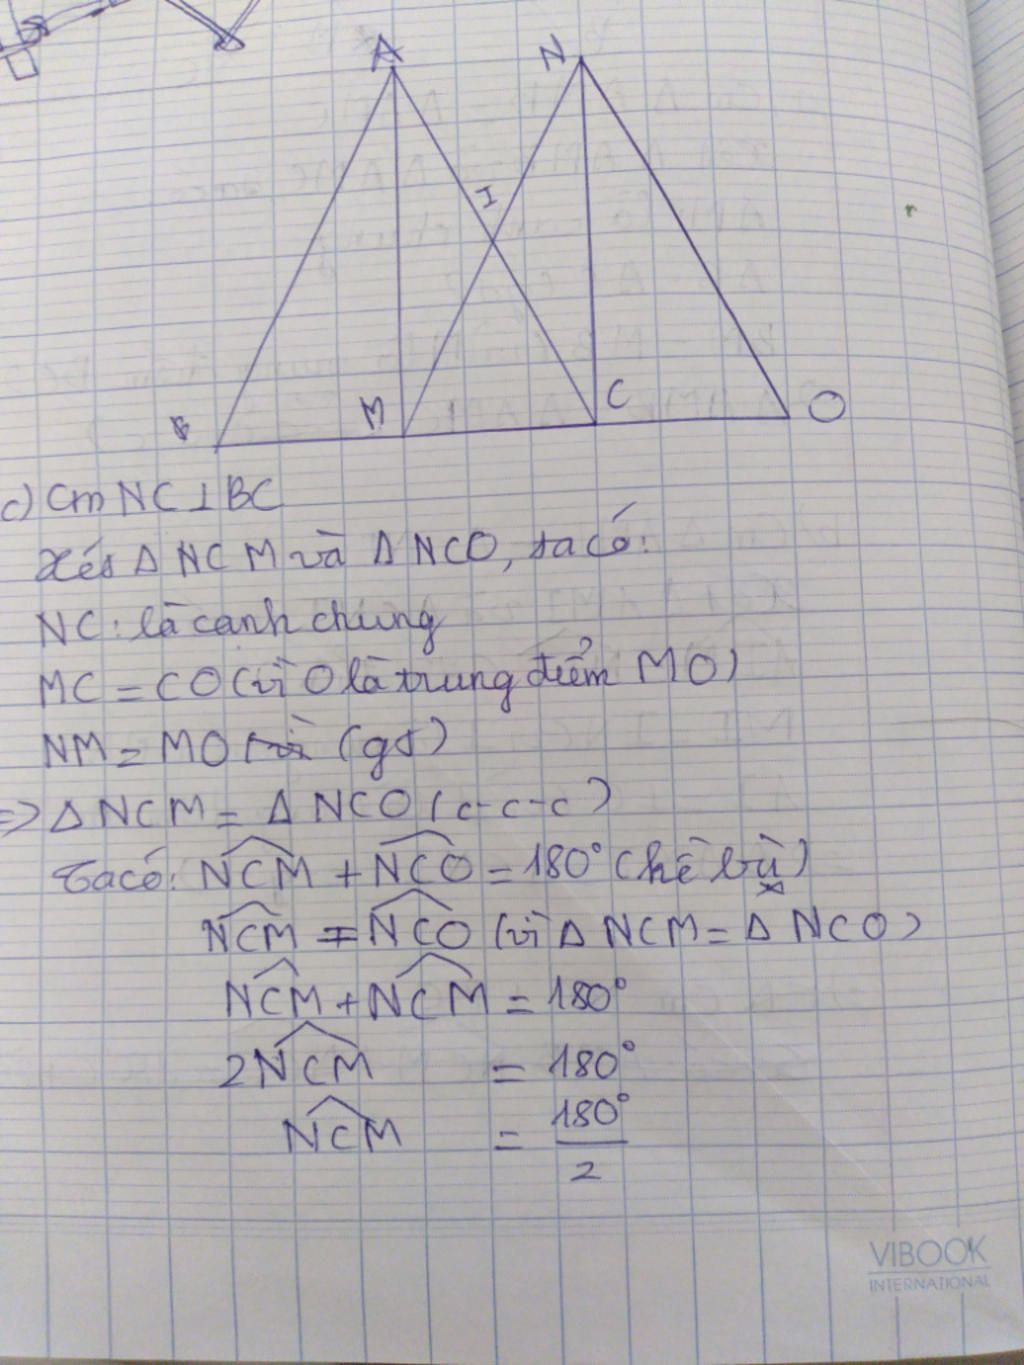 A N
I
B M C O
c) Cm NC⊥BC
Xét Δ NCM và Δ NCO, ta có:
NC: là cạnh chung
MC = CO (vì O là trung điểm MO)
NM = MO (gt)
=> Δ NCM = Δ NCO (c-c-c)
Ta có: NCM + NCO = 180° (kề bù)
NCM = NCO (vì Δ NCM = Δ NCO)
NCM + NCM = 180°
2NCM = 180°
NCM = 180°/2
VIBOOK
INTERNATIONAL